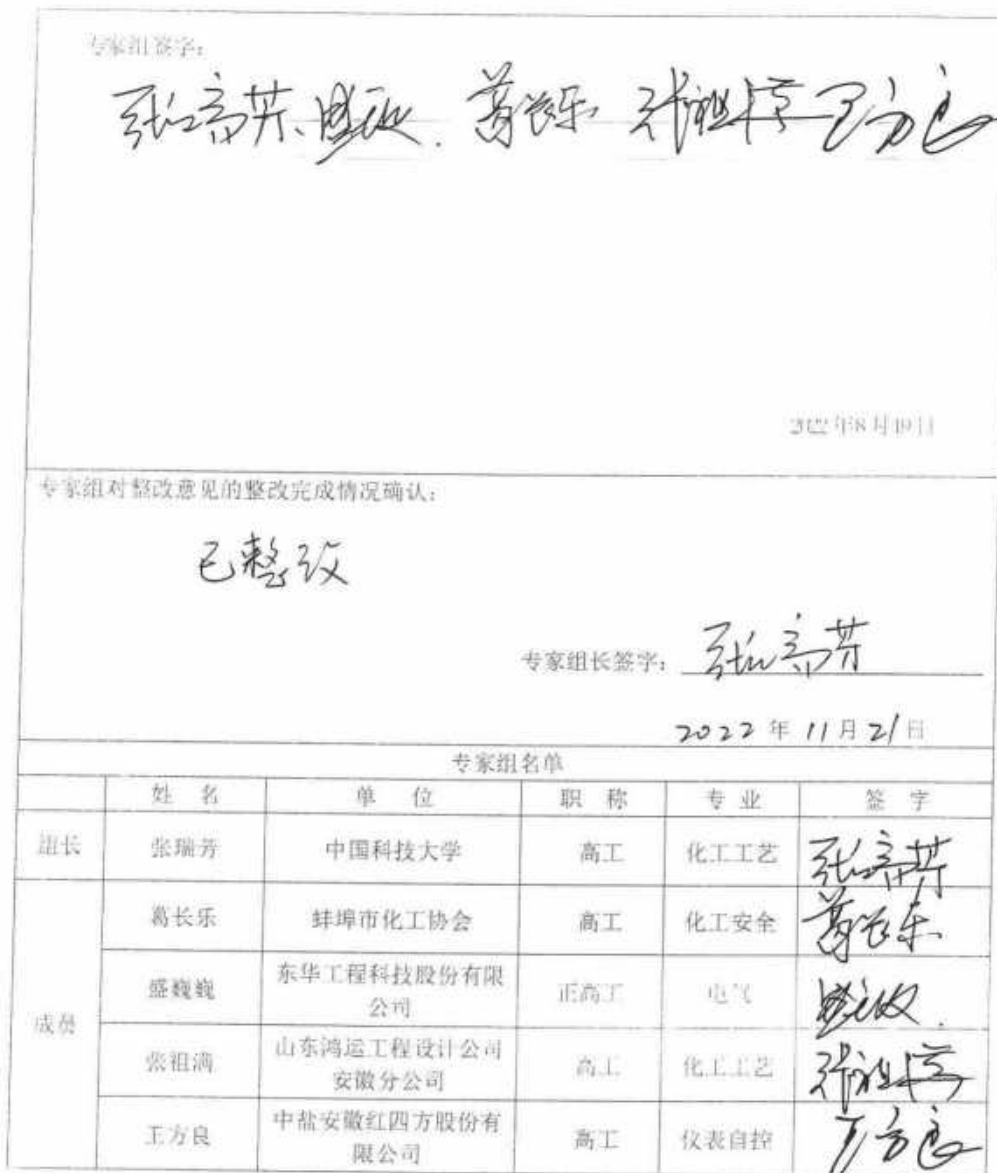 专家组签字:
张瑞芳、盛巍巍. 葛长乐 张祖满 王方良
2022年8月19日
专家组对整改意见的整改完成情况确认:
已整改
专家组长签字: 张瑞芳
2022 年 11 月 21 日
专家组名单
姓 名 单 位 职 称 专 业 签 字
组长 张瑞芳 中国科技大学 高工 化工工艺 张瑞芳
成员
葛长乐 蚌埠市化工协会 高工 化工安全 葛长乐
盛巍巍 东华工程科技股份有限
公司 正高工 电气 盛巍巍.
张祖满 山东鸿运工程设计公司
安徽分公司 高工 化工工艺 张祖满
王方良 中盐安徽红四方股份有
限公司 高工 仪表自控 王方良